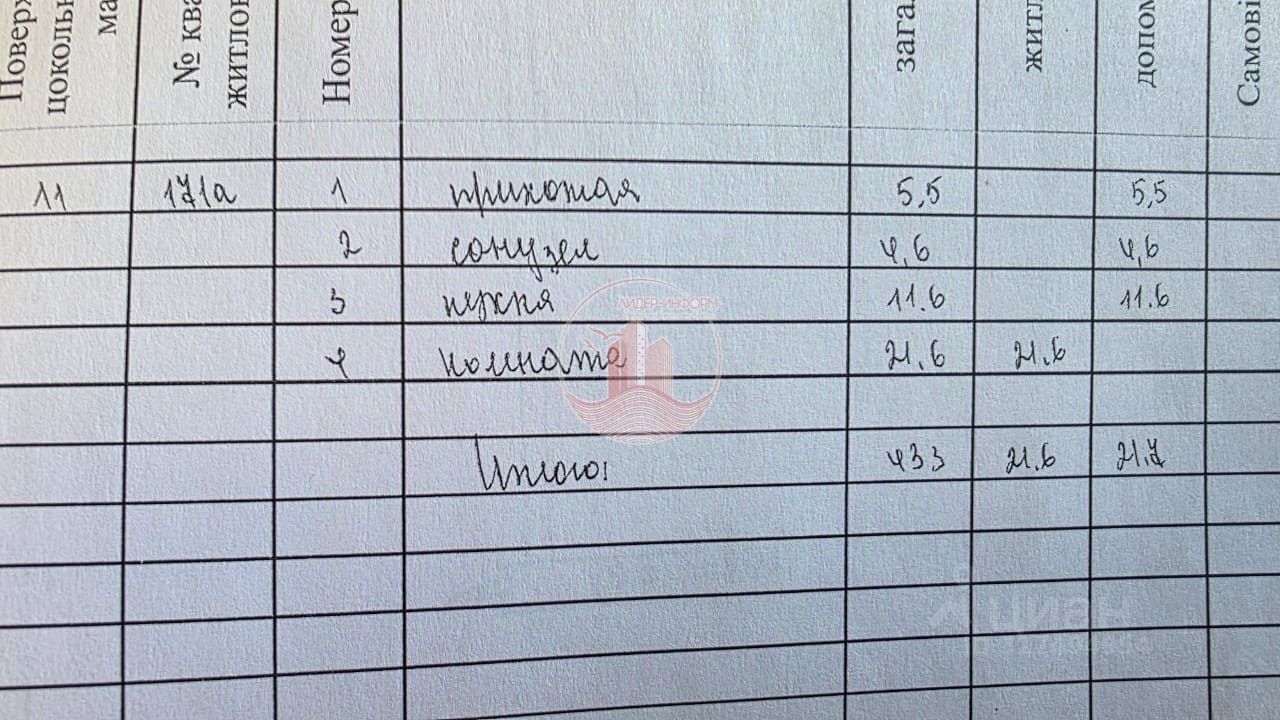 Поверх
цокольн
ма
№ ква
житлов
Номер
зага
житл
допом
Самові
11 171а 1 прихожая 5,5 5,5
2 санузел 4,6 4,6
3 кухня 11.6 11.6
ЛИДЕР-ИНФОРМ
4 комната 21.6 21.6
Итого: 433 21.6 21.7
циан